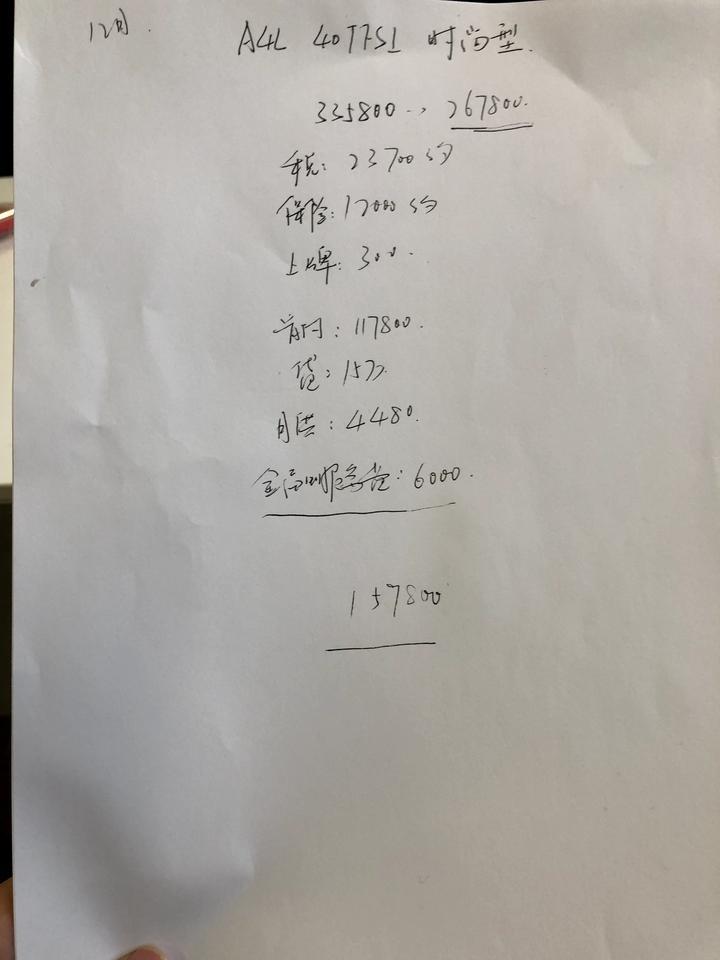 12月.
A4L 40TFSI 时尚型.
335800 → 267800.
税: 23700 约
保险: 12000 约
上牌: 300.
首付: 117800.
贷: 15万.
月供: 4480.
金融服务费: 6000.
157800